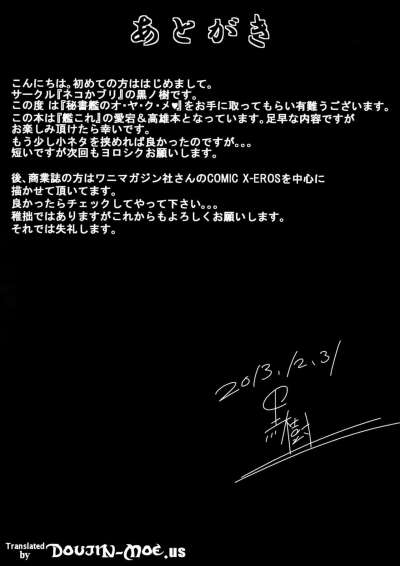 あとがき
こんにちは。初めての方ははじめまして。
サークル『ネコかブリ』の黒ノ樹です。
この度 は『秘書艦のオ・ヤ・ク・メ♥』をお手に取ってもらい有難うございます。
この本は『艦これ』の愛宕&高雄本となっています。足早な内容ですが
お楽しみ頂けたら幸いです。
もう少し小ネタを挟めれば良かったのですが。。。
短いですが次回もヨロシクお願いします。
後、商業誌の方はワニマガジン社さんのCOMIC X-EROSを中心に
描かせて頂いてます。
良かったらチェックしてやって下さい。。。
稚拙ではありますがこれからもよろしくお願いします。
それでは失礼します。
2013.12.31
Translated by DOUJIN-MOE.us